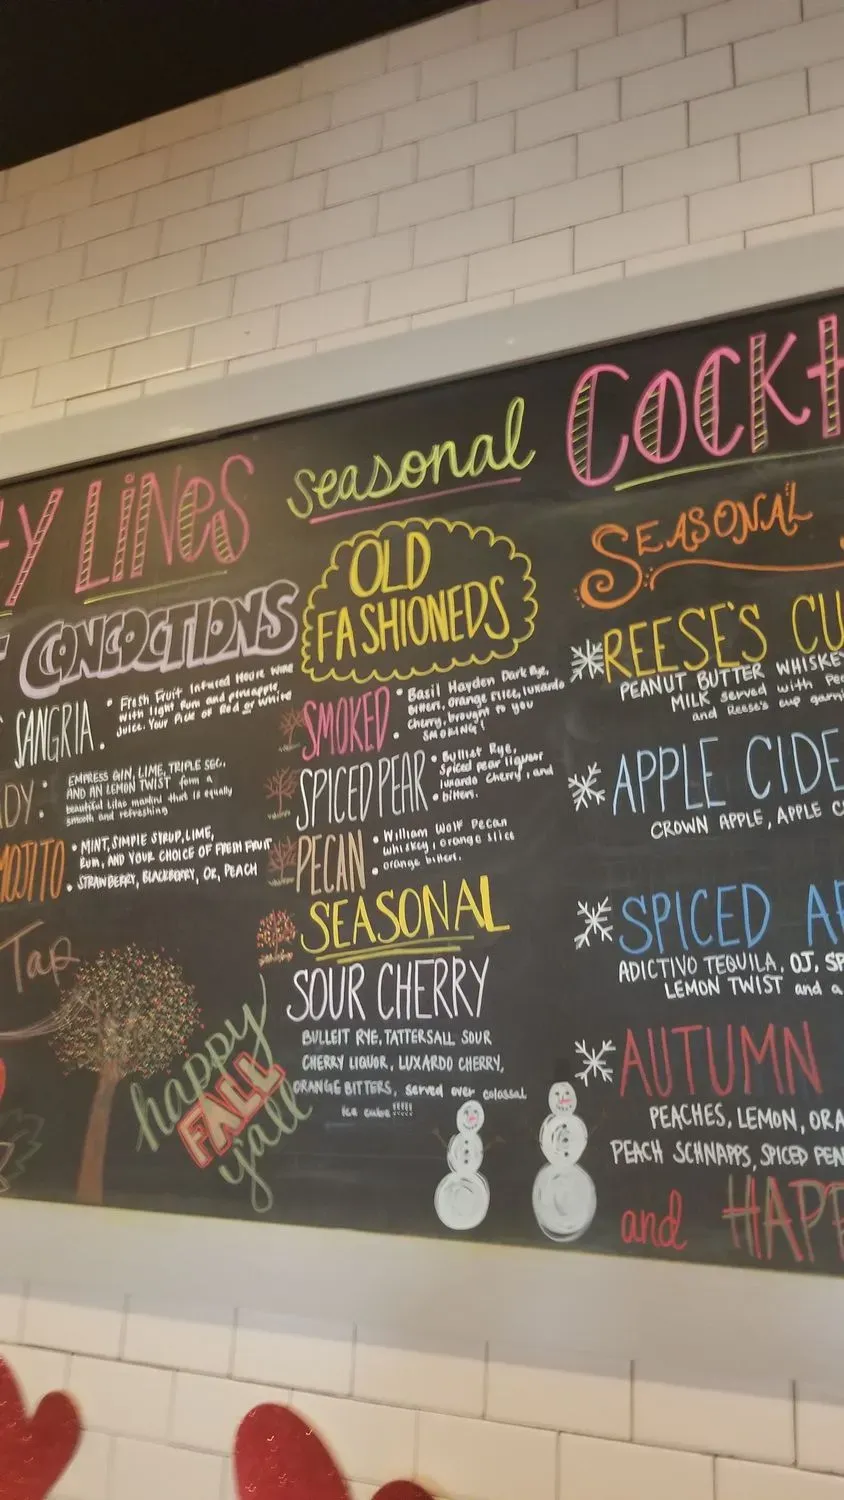 Y LiNeS
CONCOCTIONS
SANGRIA
• Fresh Fruit Infused House Wine
with light Rum and pineapple
juice. Your Pick of Red or White
ADY:
EMPRESS GIN, LIME, TRIPLE SEC,
AND AN LEMON TWIST form a
beautiful lilac martini that is equally
smooth and refreshing
MOJITO
• MINT, SIMPLE SYRUP, LIME,
Rum, AND YOUR CHOICE OF FRESH FRUIT
• STRAWBERRY, BLACKBERRY, OR, PEACH
Tap
happy
FALL
y'all
Seasonal
OLD
FASHIONEDS
SMOKED
• Basil Hayden Dark Rye,
bitters, orange slice, luxardo
cherry, brought to you
SMOKING!
SPICED PEAR
• Bulliet Rye,
Spiced pear liquour
luxardo cherry, and
• bitters.
PECAN
• William Wolf Pecan
whiskey, orange slice
• orange bitters.
SEASONAL
SOUR CHERRY
BULLEIT RYE, TATTERSALL SOUR
CHERRY LIQUOR, LUXARDO CHERRY,
ORANGE BITTERS, served over colossal
ice cube!!!!
COCKT
SEASONAL
REESE'S CU
PEANUT BUTTER WHISKEY
MILK served with Pe
and Reese's cup garni
APPLE CIDE
CROWN APPLE, APPLE C
SPICED AP
ADICTIVO TEQUILA, OJ, SP
LEMON TWIST and a
AUTUMN
PEACHES, LEMON, ORA
PEACH SCHNAPPS, SPICED PEA
and HAPP